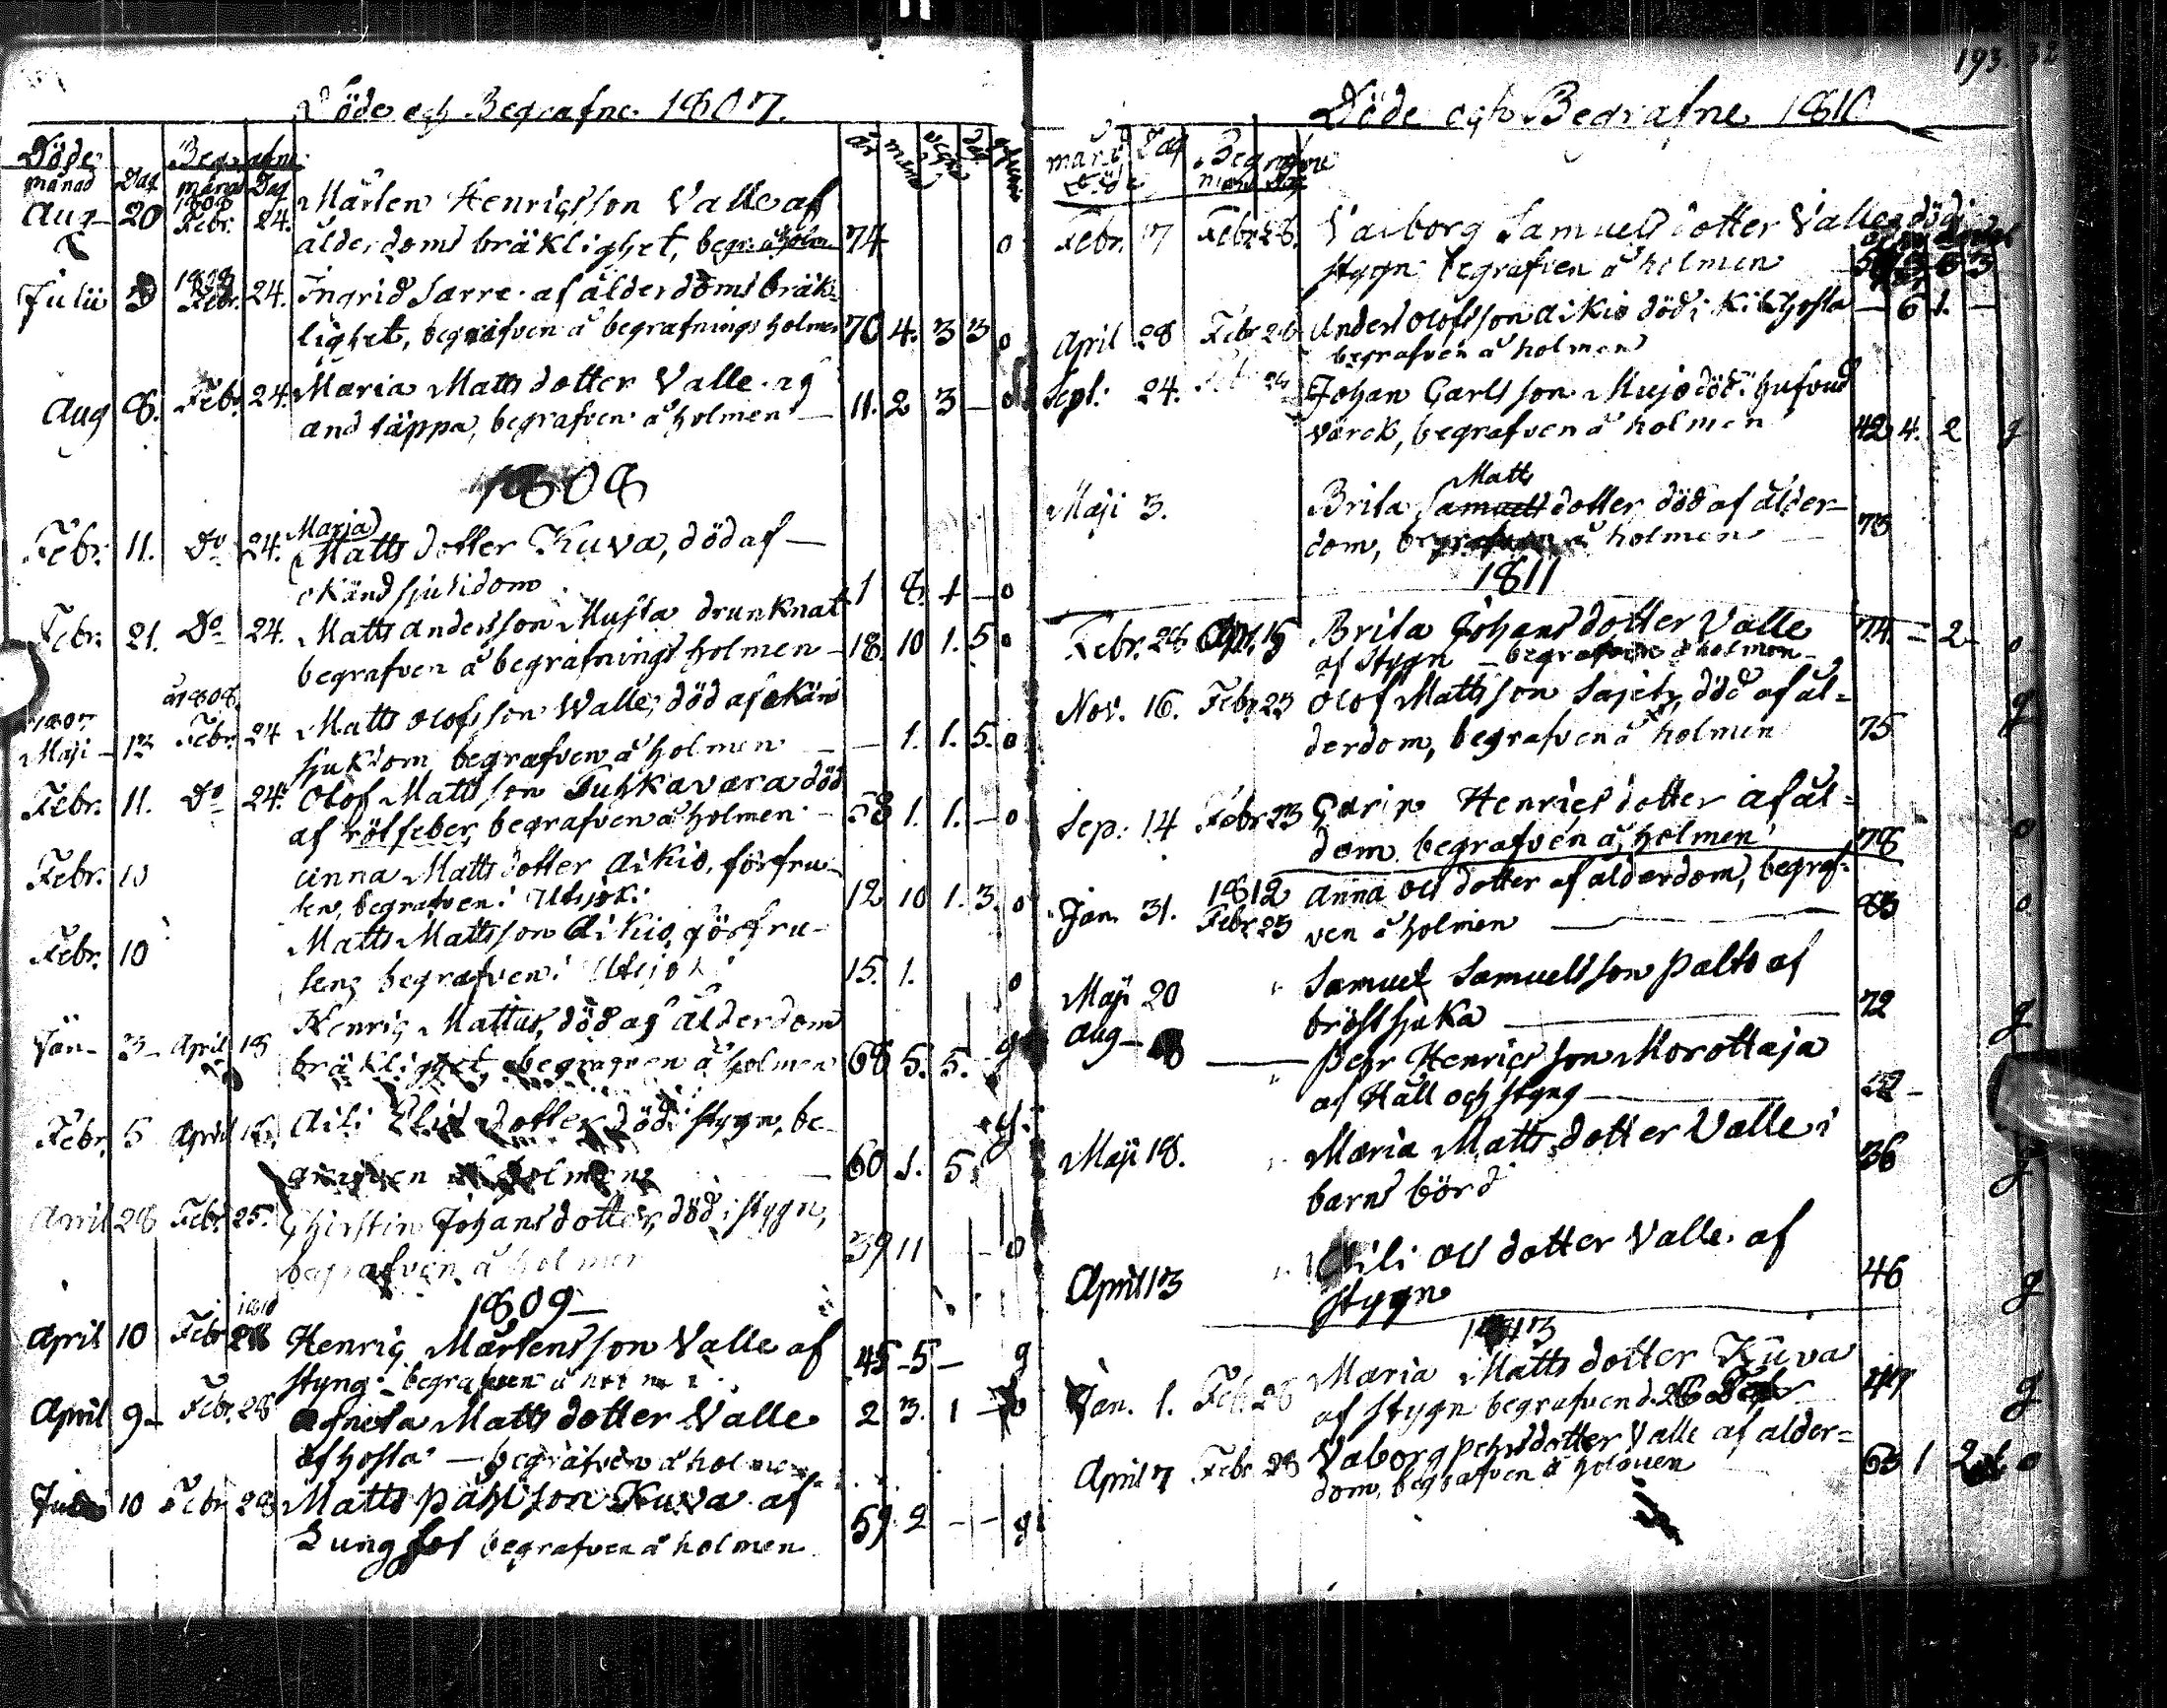 193. 32
Döde och Begrafne 1807.
Döde Begrafne
månad Dag månad Dag år månad vecka dag
Aug 20 1808 Febr. 24. Mårten Henricsson Valle af
ålderdoms bräklighet, begr. å holm 74 o
Julii 3 1808 Febr. 24. Ingrid Sarre af ålderdoms bräk-
lighet, begrafven å begrafnings holmen 70 4. 3 3 o
Aug 8. Febr. 24. Maria Matts dotter Valle af
and täppa, begrafven å holmen — 11. 2 3 — o
1808
Febr. 11. Do 24. Maria
Matts dotter Kuva, död af —
okänd sjukdom 1 8. 1 — o
Febr. 21. Do 24. Matts Andersson Musta drunknat
begrafven å begrafnings holmen — 18 10 1. 5 o
1807 år 1808
Maji — 12 Febr. 24 Matts Olofsson Valle, död af okänd
sjukdom begrafven å holmen — — 1. 1. 5. o
Febr. 11. Do 24. Olof Mattsson Tuhkavara död
af rötfeber, begrafven å holmen — 58 1. 1. — o
Febr. 10 Anna Matts dotter Aikio, förfru-
sen, begrafven i Utsjoki 12 10 1. 3. o
Febr. 10 Matts Mattsson Aikio, förfru-
sen, begrafven i Utsjoki 15. 1. o
Jan — 3 — April 18 Henric Mattus, död af ålderdoms
bräklighet, begrafven å holmen 68 5. 5. g
Febr. 5 April 18. Aili Elis dotter död i stygn, be-
grafven å holmen — 60 1. 5. g
April 28 Febr. 25. Christin Johans dotter, död i stygn,
begrafven å holmen 39 11 — o
1809 —
April 10 Febr. 1810 28 Henric Mårtensson Valle af
styng — begrafven å holmen 45 — 5 — g
April 9 — Febr. 28 Agneta Matts dotter Valle 2 3. 1 — o
af hosta — begrafven å holmen
10 Febr. 28 Matts Påhlsson Kuva af
Lung sot begrafven å holmen 59 2 — — g
Döde och Begrafne 1810
månd Dag Begrafne
Döde månd dag
Febr. 17 Febr. 28. Valborg Samuels dotter Valle död i
stygn begrafven å holmen
April 28 Febr 28 Anders Olofsson Aikio död i Kikhosta — 6 1. —
begrafven å holmen
Sept. 24. Johan Carlsson Mujo död i hufvud
värck, begrafven å holmen 42 4. 2 g
Maji 3. Matts
Brita Samuels dotter död af ålder-
dom, begrafven å holmen — 73
1811
Febr. 28 Apr. 15 Brita Johans dotter Valle 74 — 2 — o
af stygn — begrafven å holmen —
Nov. 16. Febr. 23 Olof Mattsson Sajets, död af ål-
derdom, begrafven å holmen 75 g
Sep. 14 Febr 23 Carin Henrics dotter af ål-
dom begrafven å holmen 78 o
1812
Jan. 31. Febr. 23 Anna Ols dotter af ålderdom, begraf-
ven å holmen — 83 o
Maji 20 Samuel Samuelsson Palto af
bröstsjuka — 72 g
Aug — 8 — Pehr Henricsson Morottaja
af Håll och styng — 52 —
Maji 18. Maria Matts dotter Valle i
barns börd 36 g
April 13 Aili Ols dotter Valle af
stygn 46 g
1813
Jan. 1. Feb. 28 Maria Matts dotter Kuva
af stygn begrafven d. 28 Feb 47 g
April 7 Febr. 28 Valborg Pehrs dotter Valle af ålder-
dom, begrafven å holmen 63 1 2 o